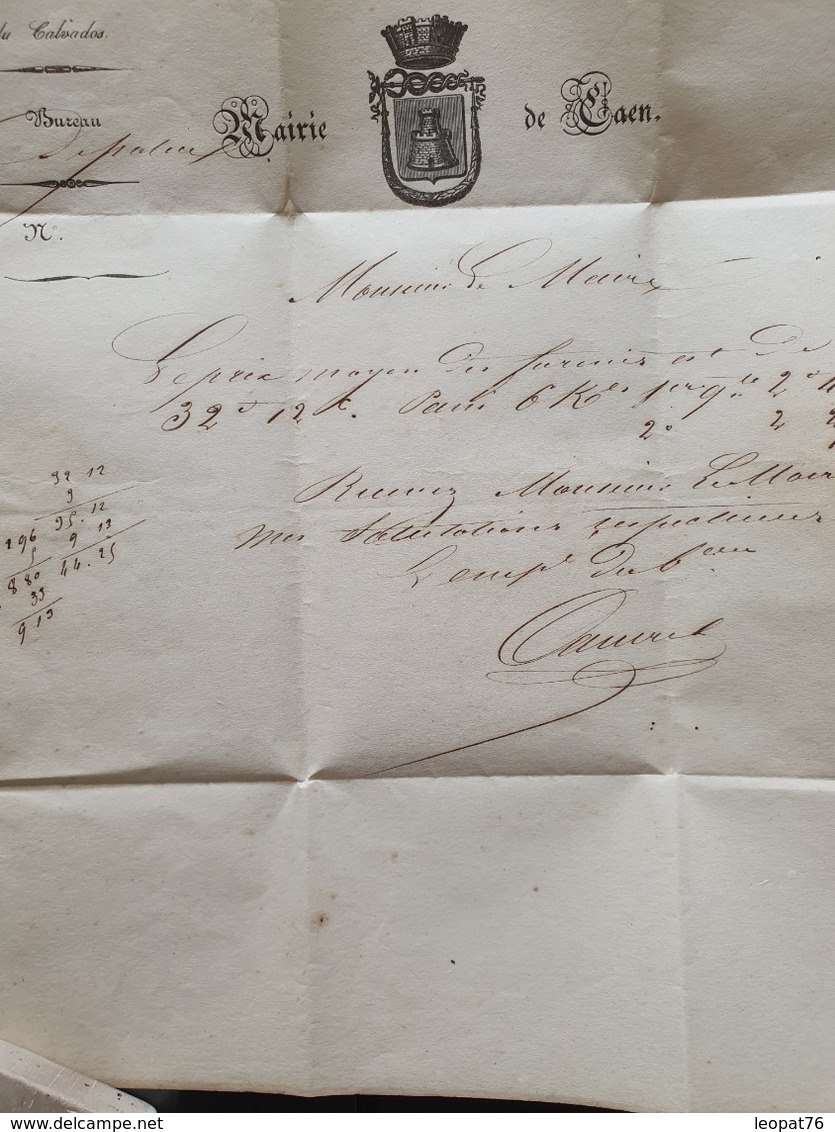 du Calvados.
Bureau
De police
Mairie de Caen.
N°.
Monsieur Le Maire
Le prix moyen des farines est de
32 f 12 c. Pain 6 K 1re q 2
2° 2
Recevez Monsieur Le Maire
mes Salutations respectueuses
L'empé du Beau
32 12
3
35.12
9 13
44.25
296
5
880
33
913
leopat76